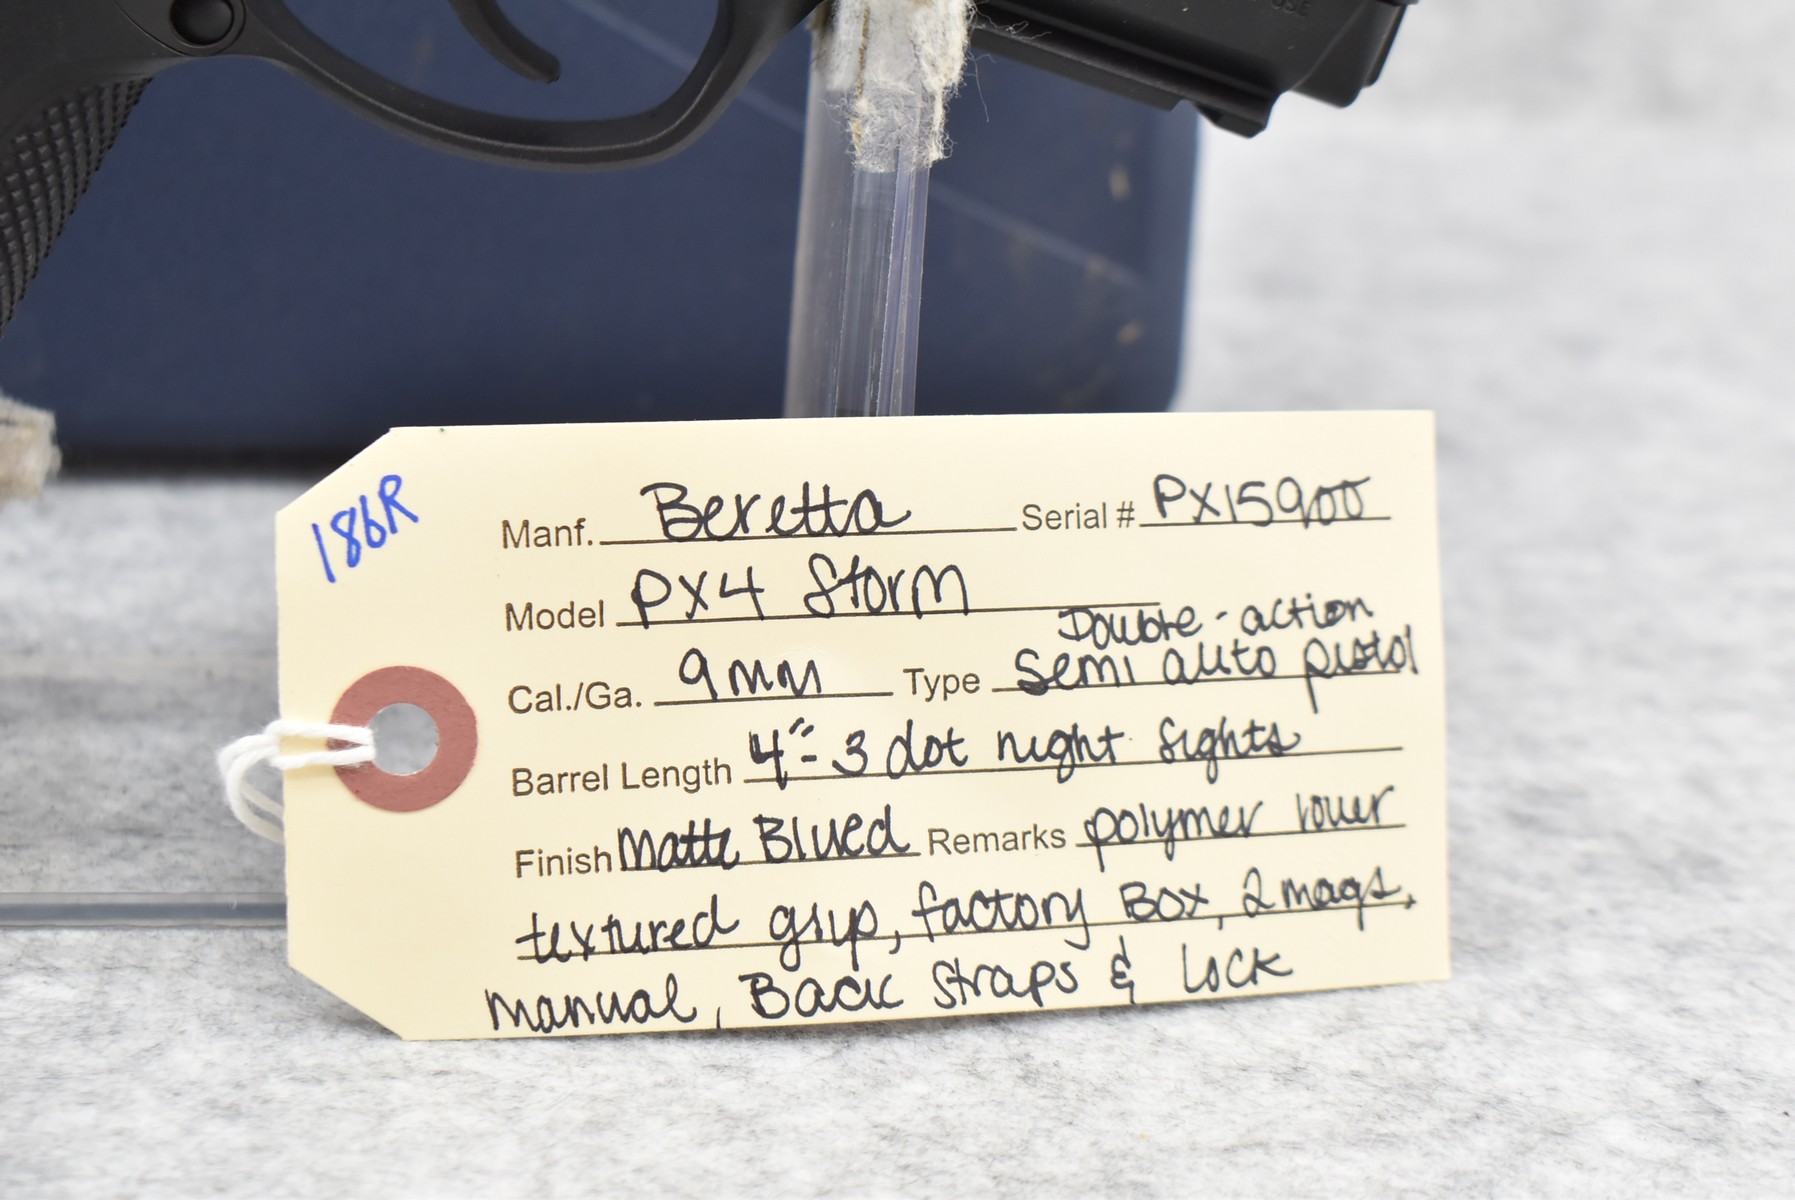 USE
186R
Manf. Beretta Serial # PX15900
Model PX4 Storm
Double-action
Cal./Ga. 9mm Type Semi auto pistol
Barrel Length 4"- 3 dot night sights
Finish Matte Blued Remarks polymer lower
textured grip, factory Box, 2 mags,
manual, Back straps & Lock